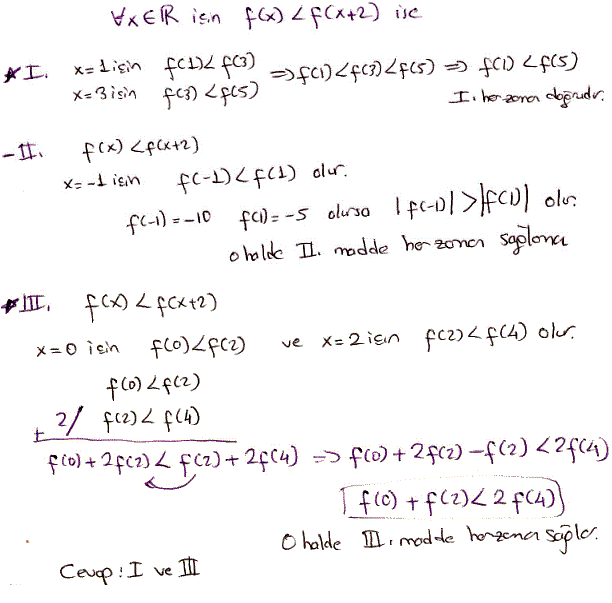 ∀x∈ℝ için f(x) < f(x+2) ise
* I. x=1 için f(1) < f(3) ⇒ f(1) < f(3) < f(5) ⇒ f(1) < f(5)
x=3 için f(3) < f(5) I. her zaman doğrudur.
- II. f(x) < f(x+2)
x=-1 için f(-1) < f(1) olur.
f(-1) = -10 f(1) = -5 olursa |f(-1)| > |f(1)| olur
o halde II. madde her zaman sağlamaz
* III. f(x) < f(x+2)
x=0 için f(0) < f(2) ve x=2 için f(2) < f(4) olur.
f(0) < f(2)
+ 2/ f(2) < f(4)
f(0) + 2f(2) < f(2) + 2f(4) ⇒ f(0) + 2f(2) - f(2) < 2f(4)
f(0) + f(2) < 2f(4)
O halde III. madde her zaman sağlar.
Cevap : I ve III